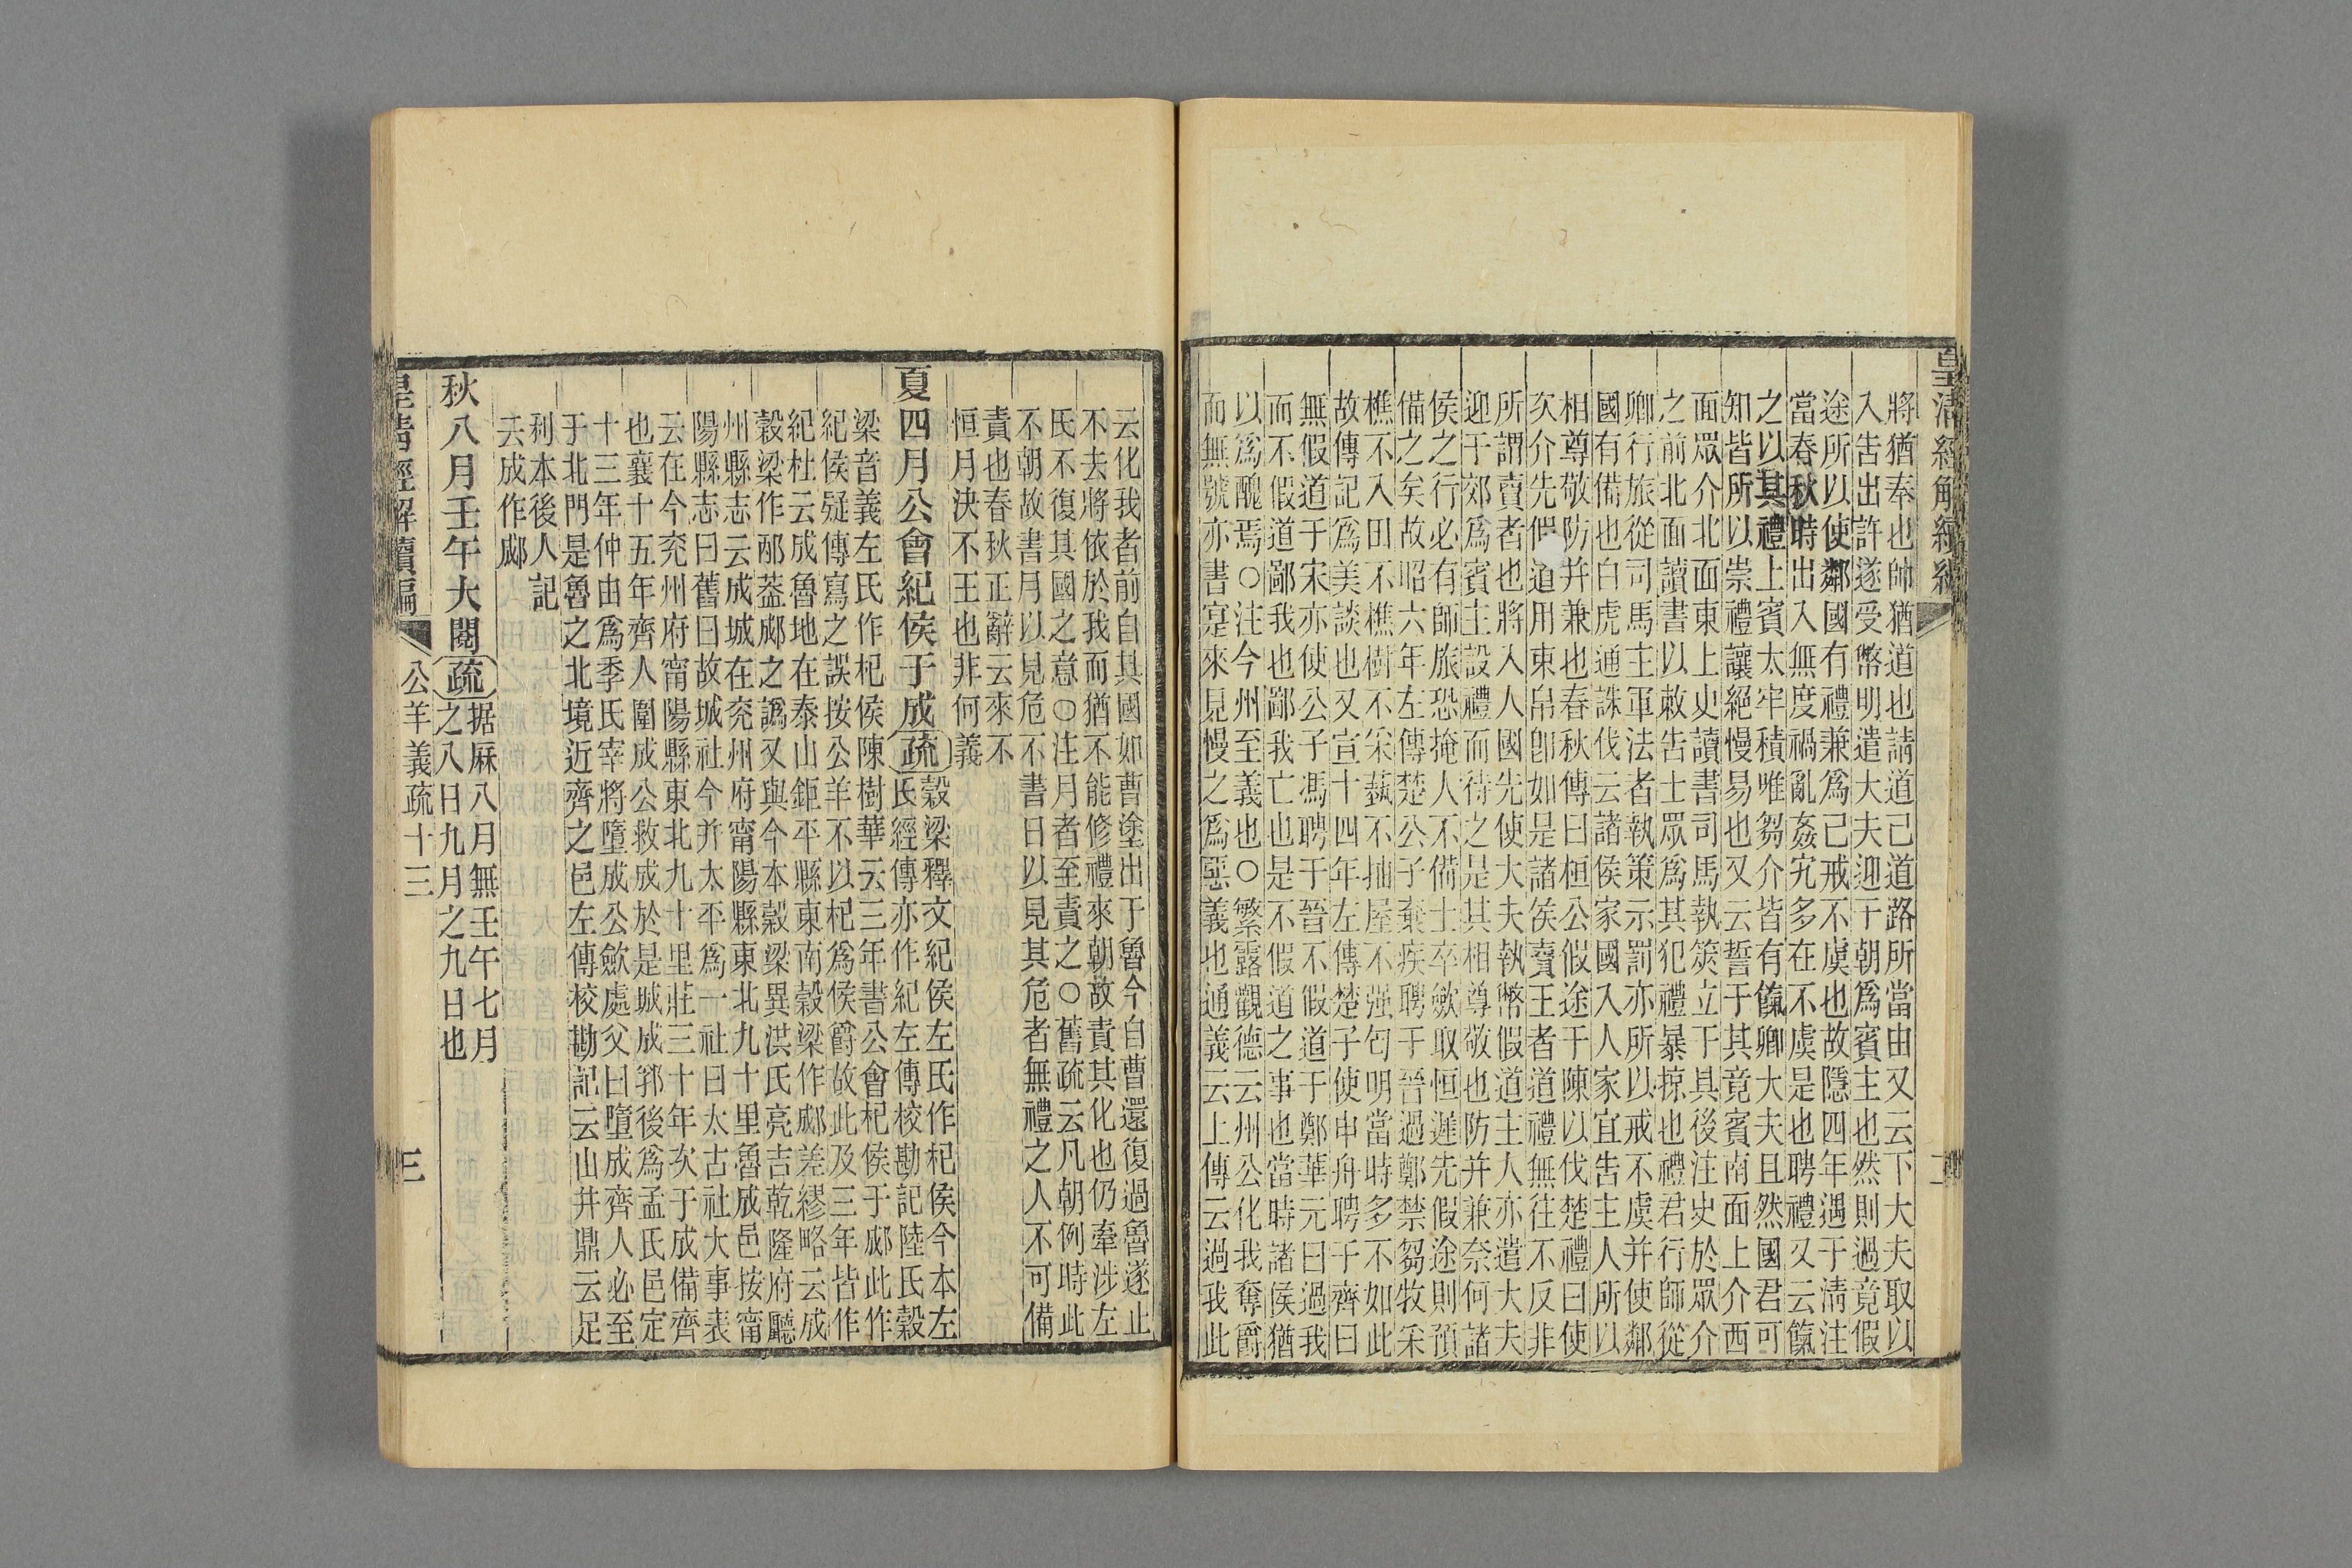 皇清經解續編
將猶奉也帥猶道也請道己道路所當由又云下大夫取以
入告出許遂受幣明遣大夫迎于朝爲賓主也然則過竟假
途所以使鄰國有禮兼爲己戒不虞也故隱四年遇于淸注
當春秋時出入無度禍亂姦宄多在不虞是也聘禮又云餼
之以其禮上賓太牢積唯芻介皆有餼卿大夫且然國君可
知皆所以崇禮讓絕慢易也又云誓于其竟賓南面上介西
面眾介北面東上史讀書司馬執筴立于其後注史於眾介
之前北面讀書以敕告士眾爲其犯禮暴掠也禮君行師從
卿行旅從司馬主軍法者執策示罰亦所以戒不虞并使鄰
國有備也白虎通誅伐云諸侯家國入人家宜告主人所以
相尊敬防并兼也春秋傳曰桓公假途于陳以伐楚禮曰使
次介先假道用束帛卽如是諸侯賣王者道禮無往不反非
所謂賣者也將入人國先使大夫執幣假道主人亦遣大夫
迎于郊爲賓主設禮而待之是其相尊敬也防并兼奈何諸
侯之行必有師旅恐掩人不備士卒斂取恒遲先假途則預
備之矣故昭六年左傳楚公子棄疾聘于晉過鄭禁芻牧采
樵不入田不樵樹不采蓺不抽屋不强匄明當時多不如此
故傳記爲美談也又宣十四年左傳楚子使申舟聘于齊曰
無假道于宋亦使公子馮聘于晉不假道于鄭華元曰過我
而不假道鄙我也鄙我亡也是不假道之事也當時諸侯猶
以爲醜焉○注今州至義也○繁露觀德云州公化我奪爵
而無號亦書寔來見慢之爲惡義也通義云上傳云過我此
云化我者前自其國如曹塗出于魯今自曹還復過魯遂止
不去將依於我而猶不能修禮來朝故責其化也仍牽涉左
氏不復其國之意○注月者至責之○舊疏云凡朝例時此
不朝故書月以見危不書日以見其危者無禮之人不可備
責也春秋正辭云來不
恒月決不王也非何義
夏四月公會紀侯于成疏穀梁釋文紀侯左氏作杞侯今本左
氏經傳亦作紀左傳校勘記陸氏穀
梁音義左氏作杞侯陳樹華云三年書公會杞侯于郕此作
紀侯疑傳寫之誤按公羊不以杞爲侯爵故此及三年皆作
紀杜云成魯地在泰山鉅平縣東南穀梁作郕差繆略云成
穀梁作郕蓋郕之譌又與今本穀梁異洪氏亮吉乾隆府廳
州縣志云成城在兖州府甯陽縣東北九十里魯成邑按甯
陽縣志曰舊曰故城社今并太平爲一社曰太古社大事表
云在今兖州府甯陽縣東北九十里莊三十年次于成備齊
也襄十五年齊人圍成公救成於是城成郛後爲孟氏邑定
十三年仲由爲季氏宰將墮成公斂處父曰墮成齊人必至
于北門是魯之北境近齊之邑左傳校勘記云山井鼎云足
利本後人記
云成作郕
秋八月壬午大閱疏据厤八月無壬午七月
之八日九月之九日也
皇淸經解續編 公羊義疏十三 三